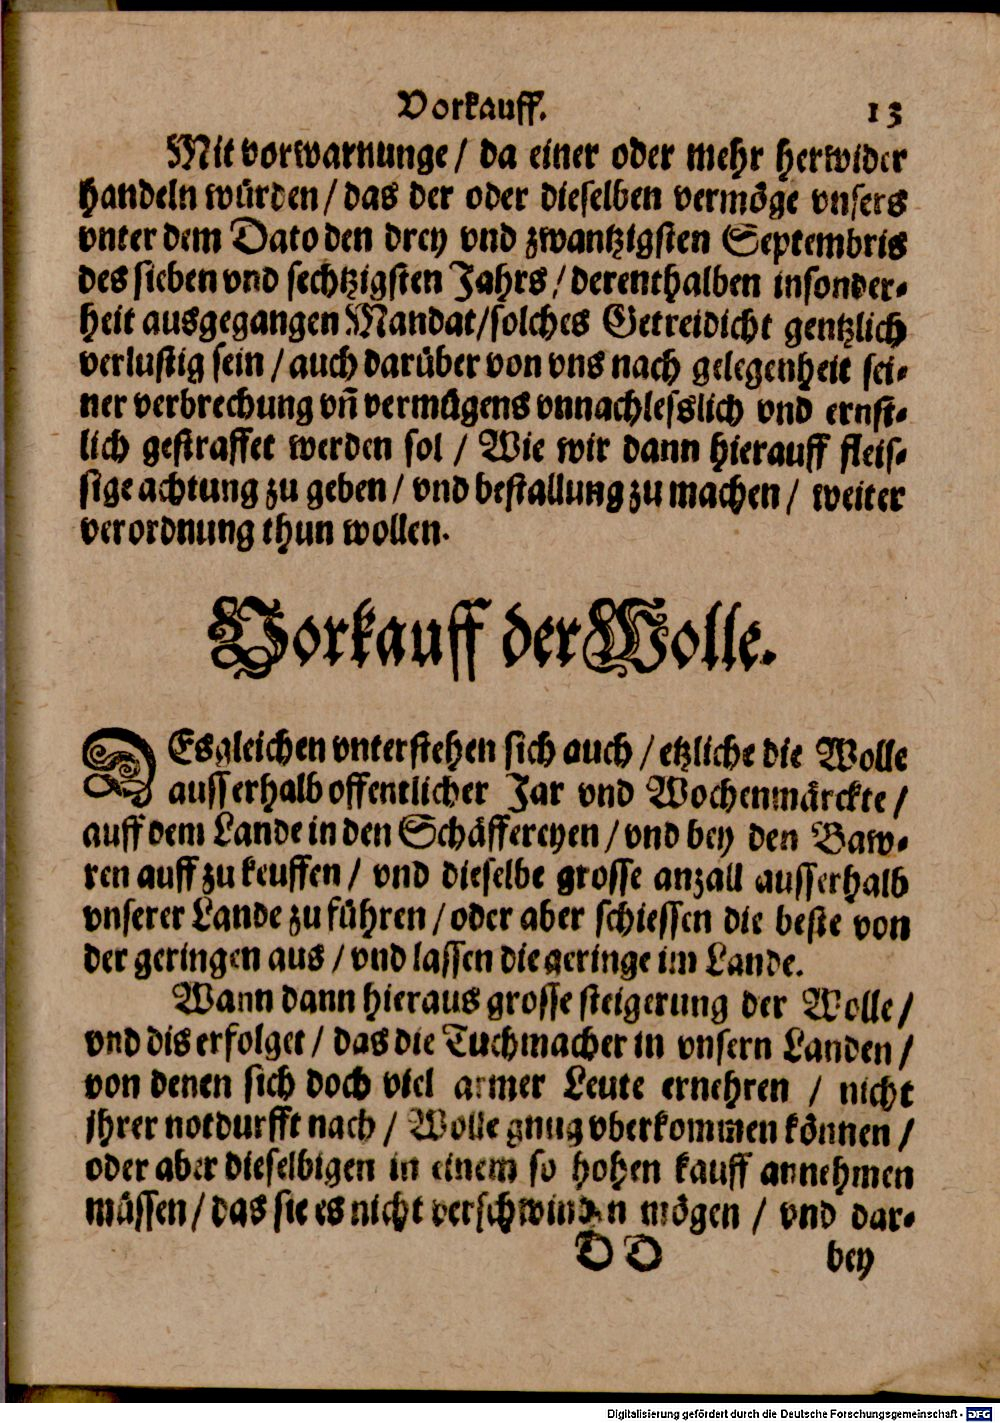 Vorkauff. 13
Mit vorwarnunge / da einer oder mehr herwider
handeln würden / das der oder dieselben vermöge vnsers
vnter dem Dato den drey vnd zwantzigsten Septembris
des sieben vnd sechtzigsten Jahrs / derenthalben insonder-
heit ausgegangen Mandat / solches Getreidicht gentzlich
verlustig sein / auch darüber von vns nach gelegenheit sei-
ner verbrechung vñ vermügens vnnachlesslich vnd ernst-
lich gestraffet werden sol / Wie wir dann hierauff fleis-
sige achtung zu geben / vnd bestallung zu machen / weiter
verordnung thun wollen.
Vorkauff der Wolle.
DEsgleichen vnterstehen sich auch / etzliche die Wolle
ausserhalb offentlicher Jar vnd Wochenmärckte /
auff dem Lande in den Schäffereyen / vnd bey den Baw-
ren auff zu keuffen / vnd dieselbe grosse anzall ausserhalb
vnserer Lande zu führen / oder aber schiessen die beste von
der geringen aus / vnd lassen die geringe im Lande.
Wann dann hieraus grosse steigerung der Wolle /
vnd dis erfolget / das die Tuchmacher in vnsern Landen /
von denen sich doch viel armer Leute ernehren / nicht
jhrer notdurfft nach / Wolle gnug vberkommen können /
oder aber dieselbigen in einem so hohen kauff annehmen
müssen / das sie es nicht verschwinden mögen / vnd dar-
D D bey
Digitalisierung gefördert durch die Deutsche Forschungsgemeinschaft - DFG